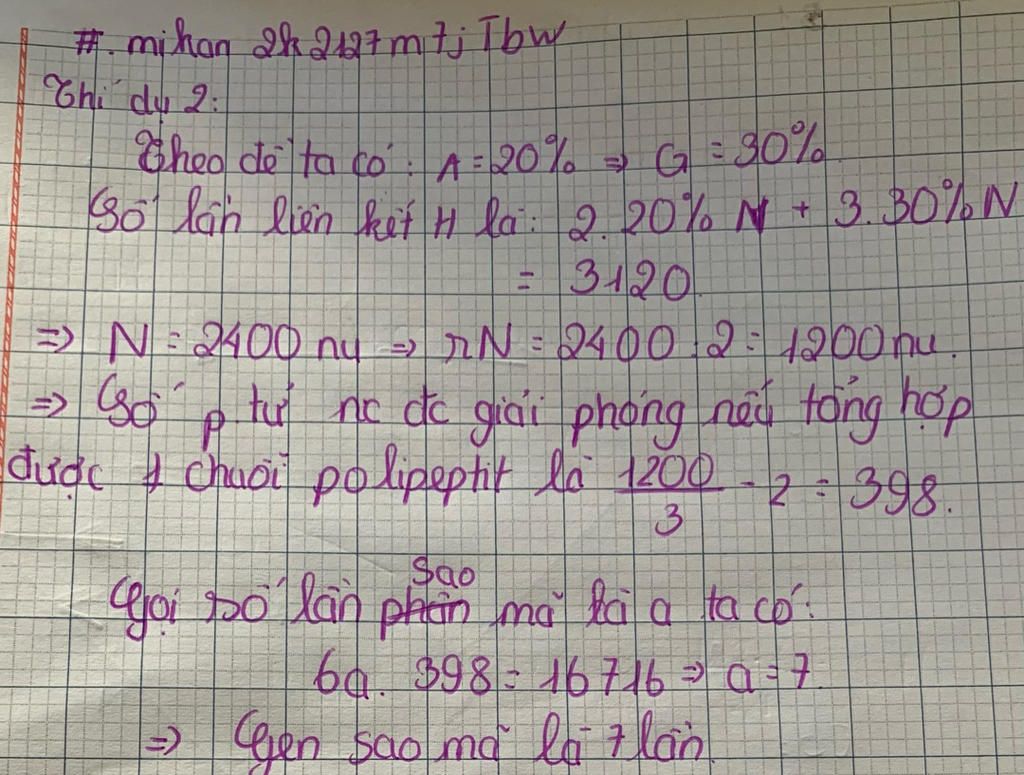 #. mihan 2k2127m7jTbw
Thí dụ 2:
Theo đề ta có: A = 20% ⇒ G = 30%
Số lần liên kết H là: 2.20% N + 3.30% N
= 3120
⇒ N = 2400 nu ⇒ rN = 2400 : 2 = 1200 nu.
⇒ Số p tử nc đc giải phóng nếu tổng hợp
được 1 chuỗi polipeptit là 1200/3 - 2 = 398.
Gọi số lần sao mã là a ta có:
6a. 398 = 16716 ⇒ a = 7
⇒ Gen sao mã là 7 lần.